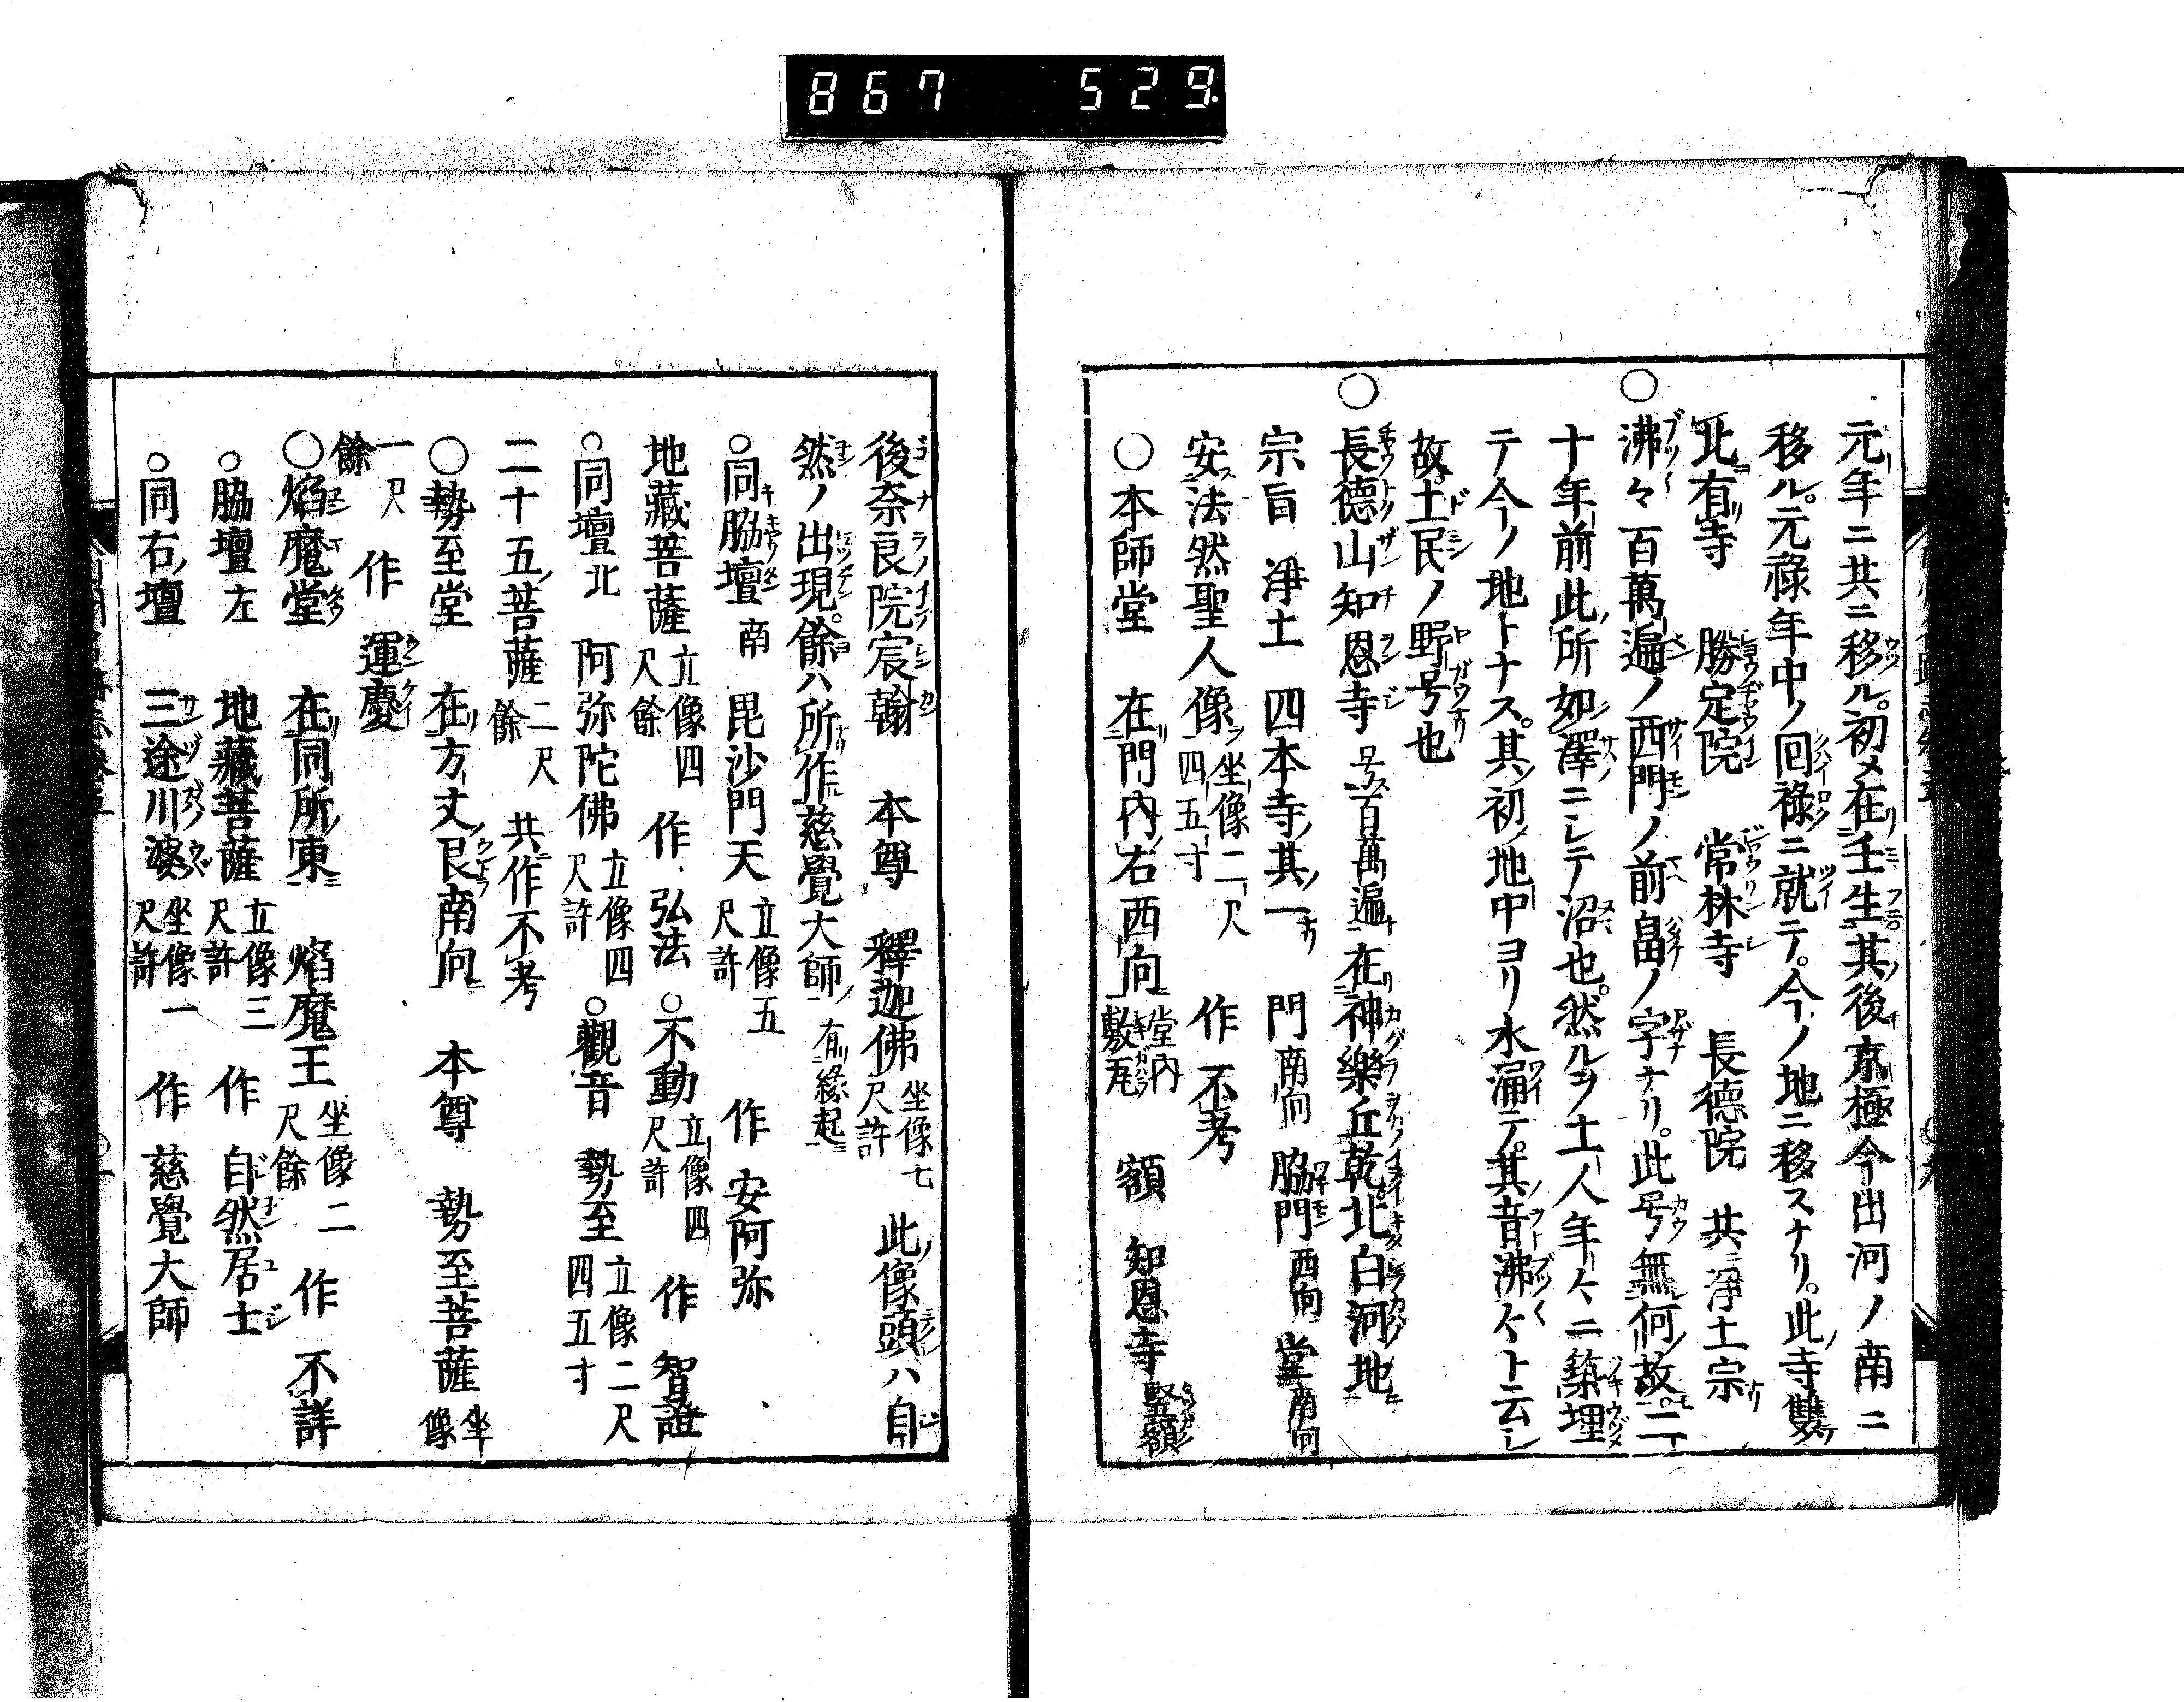 867 529
元年ニ共ニ移ル。初メ在壬生其後京極今出河ノ南ニ
移ル。元禄年中ノ回禄ニ就テ。今ノ地ニ移スナリ。此寺雙
北有寺 勝定院 常林寺 長德院 共ニ淨土宗
○沸々百萬遍ノ西門ノ前畠ノ字ナリ。此号無何故。二
十年前此所如澤ニシテ沼也。然ルヲ土人年々ニ築埋
テ今ノ地トナス。其初地中ヨリ水涌テ。其音沸々ト云シ
故土民ノ野号也
○長德山知恩寺 号百萬遍 在神樂丘乾。北白河地
宗旨 淨土 四本寺其一 門 南向 脇門 西向 堂 南向
安法然聖人像 坐像二尺四五寸 作 不考
○本師堂 在門內右西向 堂內敷瓦 額 知恩寺 竪額
後奈良院宸翰 本尊 釋迦佛 坐像七尺許 此像頭ハ自
然ノ出現。餘ハ所作慈覺大師 有緣起
○同脇壇 南 毘沙門天 立像五尺許 作 安阿弥
地藏菩薩 立像四尺餘 作 弘法 ○不動 立像四尺許 作 智證
○同壇北 阿弥陀佛 立像四尺許 ○觀音 勢至 立像二尺四五寸
二十五菩薩 二尺餘 共作不考
○勢至堂 在方丈艮南向 本尊 勢至菩薩 坐像
一尺餘 作 運慶
○焰魔堂 在同所東 焰魔王 坐像二尺餘 作 不詳
○脇壇左 地藏菩薩 立像三尺許 作 自然居士
○同右壇 三途川婆 坐像一尺許 作 慈覺大師